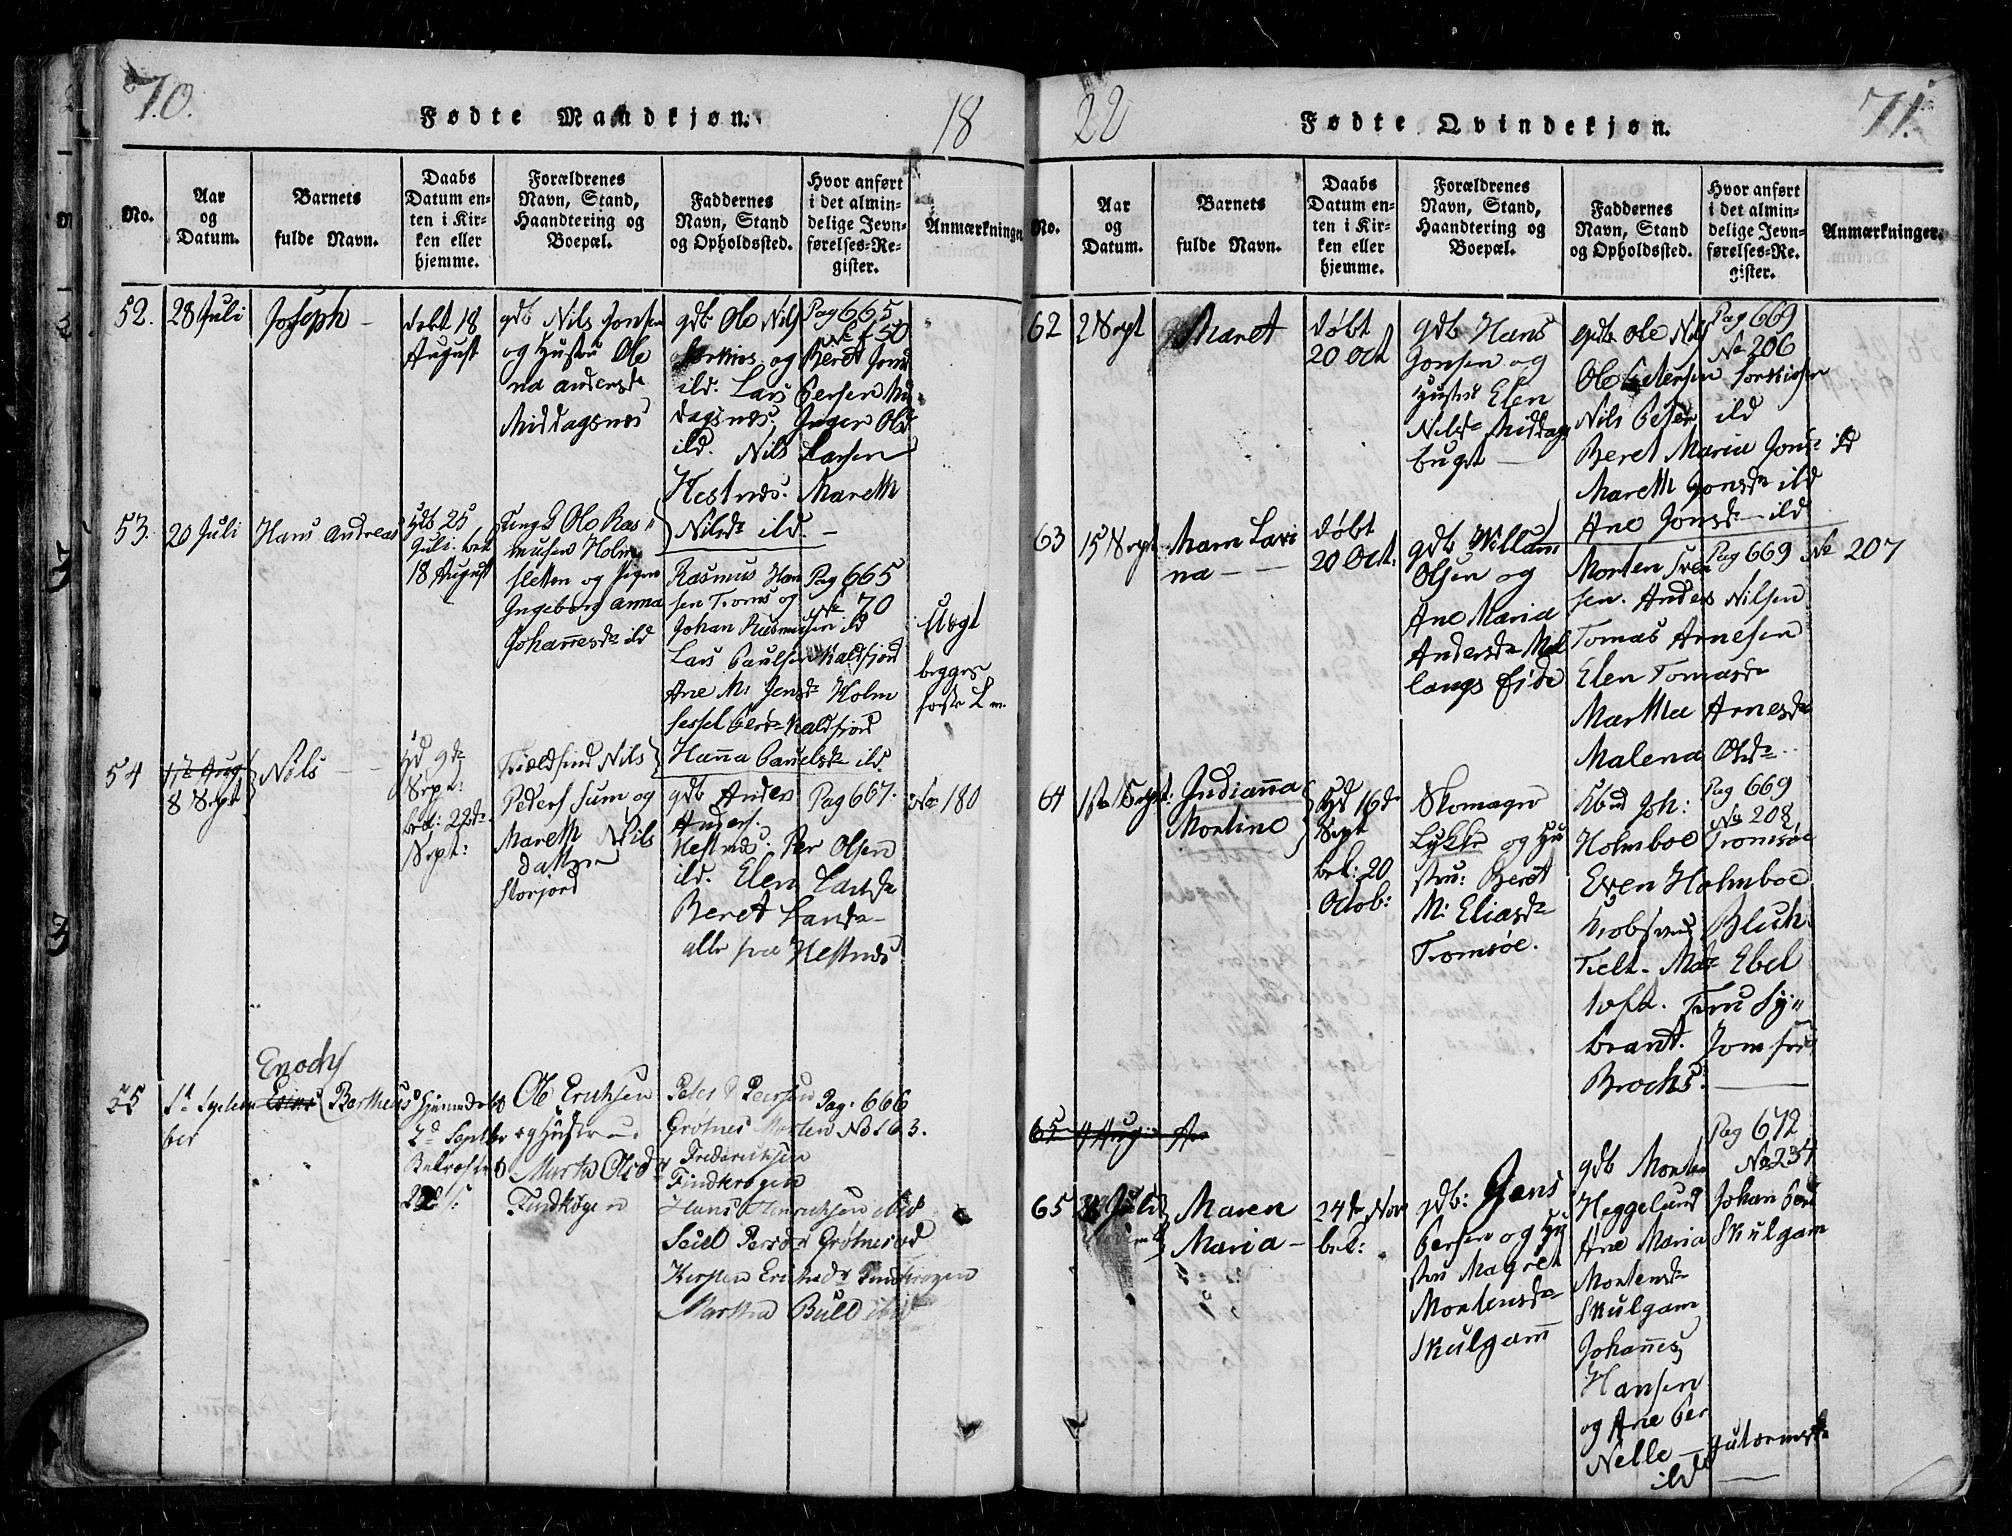 70.
Fødte Mandkjøn.
18
No.
Aar og Datum.
Barnets fulde Navn.
Daabs Datum enten i Kirken eller hjemme.
Forældrenes Navn, Stand, Haandtering og Boepæl.
Faddernes Navn, Stand og Opholdssted.
Hvor anført i det almindelige Jevnførelses-Register.
Anmærkninger
52.
28 Juli
Joseph
døbt 18
August
gdb Nils Jonsen
og Hustru Ole
na andersd
Middagsnes
gdb Ole Nils
og Beret Jons
ild. Lars Persen Mid
dagsnæs. Inger Olsd
ild. Nils Larsen
Hestnæs. Mareth
Nilsd ild.
Pag 665
No 150
53.
20 Juli
Hans Andreas
Hdb 25
Juli. bek
18 August
Ung K Ole Ras
musen Holm
sletten og Pigen
Ingeborg anna
Johannesd ild
Rasmus Han
sen Troms og
Johan Rasmusen ild
Lars Paulsen Kaldfjord
Ane M. Jensd Holm
Sessel Persd Kaldfjord
Hanna Pauelsd ild
Pag 665
No 70
Uægt
begges
54
8 Sept
Nils
Hd 9de
Sept:
bek: 22de
Sept:
Fieldfind Nils
Peders Sum og
Mareth Nils
datter
Storfjord
gdb Anders
Anders.
Hestnæs. Per Olsen
ild. Elen Larsd
Beret Larsd
alle fra Hestnæs
Pag 667.
No 180
55
1d Septem
ber
Enochs
Bertheus
Hjemmedøbt
2d Septbr
Bekræftet
22
Ole Erichsen
og Hustrue
Martha Olsdr
Findkrogen
Peter P Peersen
Grøtnes Morten
Frederichsen
Findkrogen
Hans Henrichsen ibid
Seiel Persdr Grøtnes
Kirsten Erichsdr Findkrogen
Martha Bull ibid
Pag: 666
No 163.
22
Fødte Qvindekjøn.
71.
No.
Aar og Datum.
Barnets fulde Navn.
Daabs Datum enten i Kirken eller hjemme.
Forældrenes Navn, Stand, Haandtering og Boepæl.
Faddernes Navn, Stand og Opholdssted.
Hvor anført i det almindelige Jevnførelses-Register.
Anmærkninger.
62
2 Sept
Maret
døbt
20 Oct
gdb Hans
Jonsen og
Hustru Elen
Nilsd Middags
buget
gdb Ole Nils
Ole Petersen
Nils Peter ild
Beret Maria Jonsd ild
Mareth Jonsd ild
Ane Jonsd ild
Pag 669
No 206
63
15 Sept
Maren Lavi
na
døbt
20 Oct.
gdb Willum
Olsen og
Ane Maria
Andersd Mel
langs Eide
Morten Iver
sen. Anders Nilsen
Tomas Arnesen
Elen Tomasd
Martha Arnesd
Malena Olsd
Pag 669 No 207
64
1ste Sept:
Indianna
Martine
Hd 16de
Sept
bek: 20
Octob:
Skomager
Lykke og Hu
stru: Beret
M: Eliasd
Tromsøe.
Kbmd Joh:
Holmboe Tromsøe
Even Holmboe
Kiøbmd Bluch
Felt. Mad Ebel
toft. Fru Sy
brant. Jomfru
Brochs.
Pag 669
No 208
65 4 Aug
65
Juli
Maren
Maria
24de Nov
bek:
gdb: Jens
Persen og Hu
stru Magret
Mortensd
Skulgam
gdb Morten
Heggelund
Ane Maria
Mortensd
Skulgam
Johannes
Hansen
og Ane Per
Nelle
ild
Pag 672
No 234
Johan Peter
Skulgam